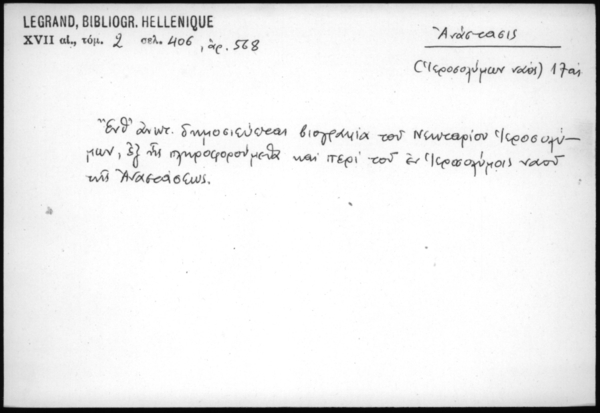 LEGRAND, BIBLIOGR. HELLENIQUE
XVII αἰ., τόμ. 2 σελ. 406, ἀρ. 568
Ἀνάστασις
(Ἱεροσολύμων ναός) 17 αἰ.
Ἔνθ' ἀνωτ. δημοσιεύεται βιογραφία τοῦ Νεκταρίου Ἱεροσολύ-
μων, ἐξ ἧς πληροφορούμεθα καὶ περὶ τοῦ ἐν Ἱεροσολύμοις ναοῦ
τῆς Ἀναστάσεως.